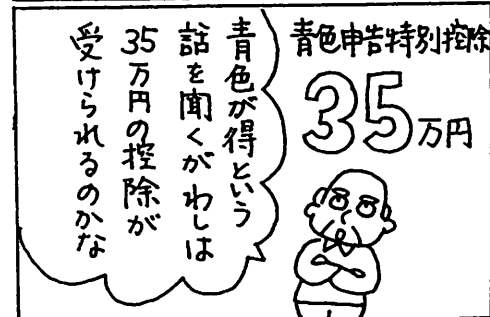 青色申告特別控除
35万円
青色が得という
話を聞くがわしは
35万円の控除が
受けられるのかな